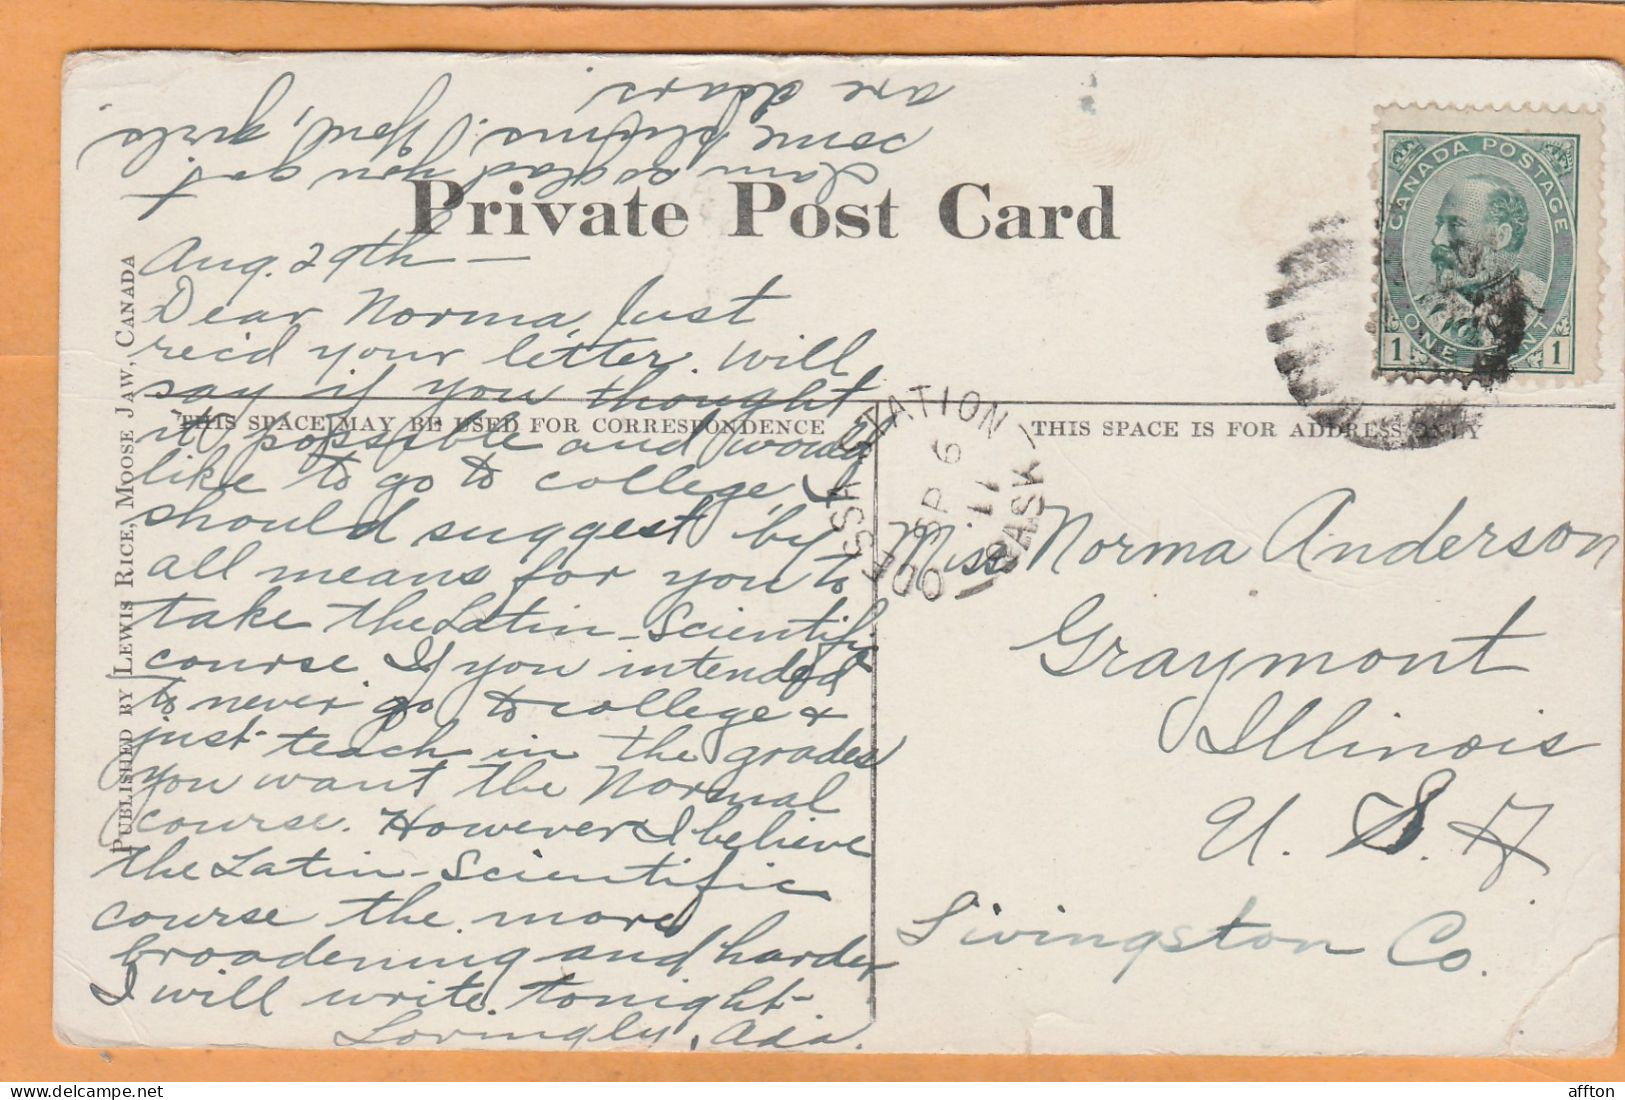 Private Post Card
PUBLISHED BY LEWIS RICE, MOOSE JAW, CANADA
THIS SPACE MAY BE USED FOR CORRESPONDENCE
THIS SPACE IS FOR ADDRESS ONLY
CANADA POSTAGE
ONE CENT
1 1
STATION
SP 6
11
SASK
Aug. 29th —
Dear Norma, Just
rec'd your letter. Will
say if you thought
it possible and would
like to go to college, I
should suggest by
all means for you to
take the Latin-Scientific
course. If you intended
to never go to college &
just teach in the grades
you want the Normal
course. However I believe
the Latin-Scientific
course the more
broadening and harder
I will write tonight-
Lovingly, Ada.
I am so glad you got
some plums. Your girls
are dears.
Miss Norma Anderson
Graymont
Illinois
U. S. A
Livingston Co.
affton